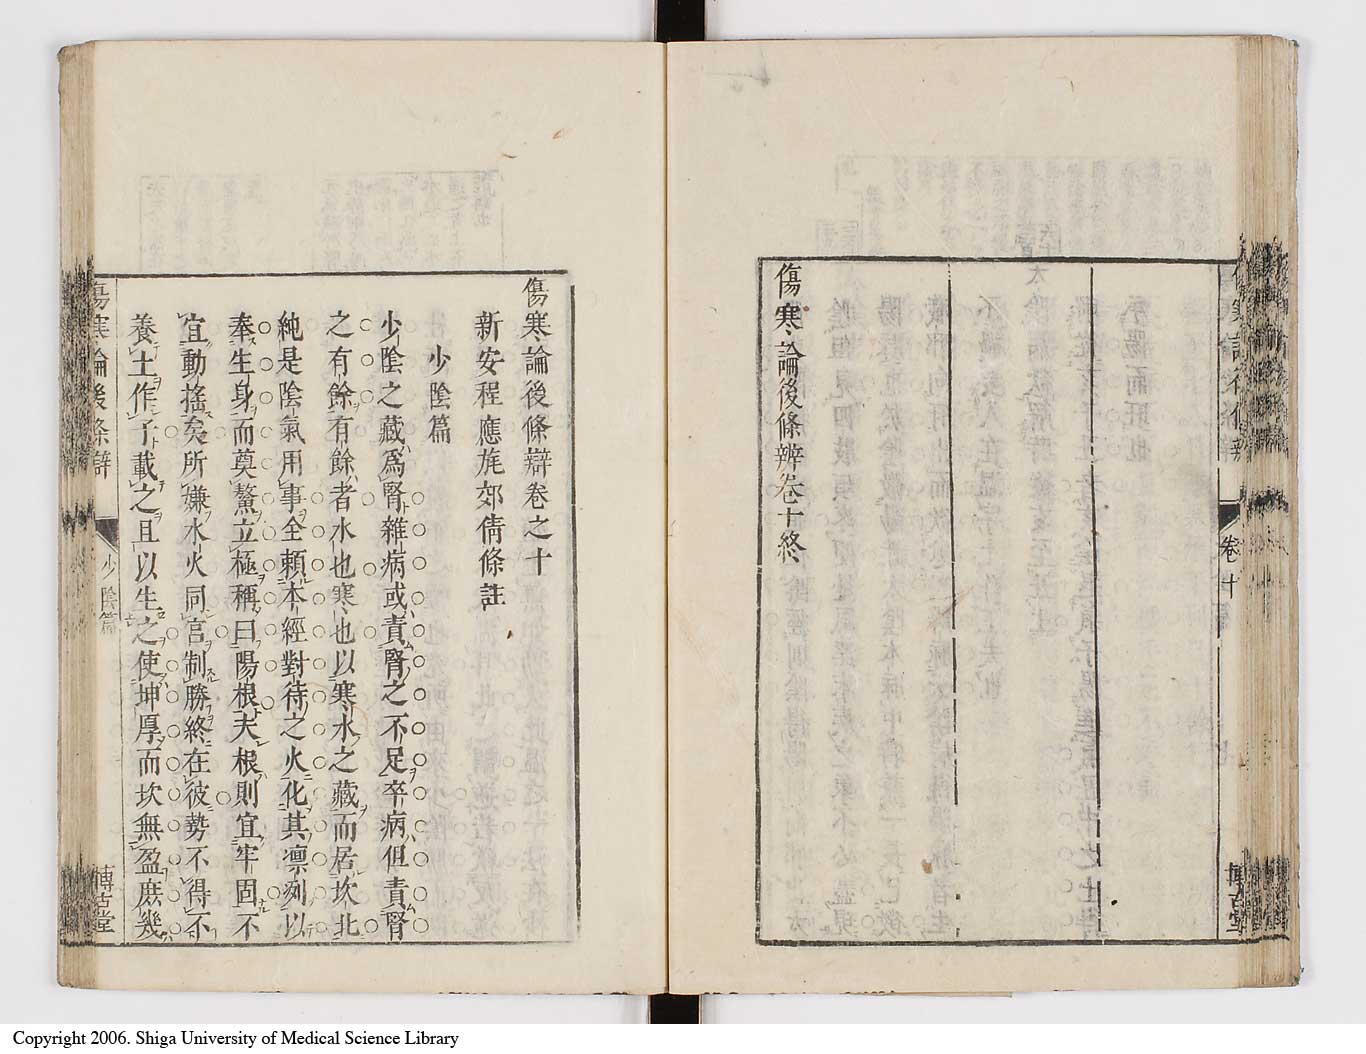 傷寒論後條辨卷十終
卷十
博古堂
傷寒論後條辯卷之十
新安程應旄郊倩條註
少陰篇
少陰之藏爲腎雜病或責腎之不足卒病但責腎
之有餘有餘者水也寒也以寒水之藏而居坎北
純是陰氣用事全賴本經對待之火化其凛冽以
奉生身而奠鰲立極稱曰陽根夫根則宜牢固不
宜動搖矣所嫌水火同宮制勝終在彼勢不得不
養土作子載之且以生之使坤厚而坎無盈庶幾
傷寒論後條辯
少陰篇
博古堂
Copyright 2006. Shiga University of Medical Science Library